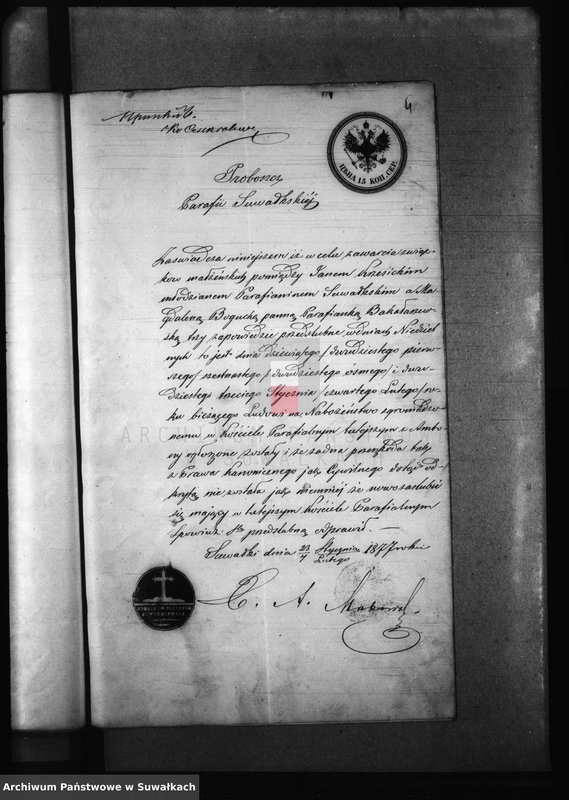 4
ЦѢНА 15 КОП. СЕР.
Proboszcz
Parafii Suwałkskiéj
Zaświadcza niniejszem iż w celu zawarcia związ-
ków małżeńskich pomiędzy Janem Krzesickim
młodzianem Parafianinem Suwałkskim a Ma-
gdaleną Bogucką panną Parafianką Bakałarzew-
ską trzy zapowiedzie przedślubne w dniach Niedziel
nych to jest dnia dziewiątego / dwudziestego pierw-
szego / szesnastego / dwudziestego ósmego / i dwu-
dziestego trzeciego Stycznia / czwartego Lutego / ro-
ku bieżącego Ludowi na Nabożeństwo zgromadzo-
nemu w kościele Parafialnym tutejszym z Ambo-
ny ogłoszone zostały i że żadna przeszkoda tak
z Prawa kanonicznego jako Cywilnego dotąd od-
krytą nie została jako niemniéj że nowozaślubić
się mający w tutejszym kościele Parafialnym
Spowiedź Stą przedślubną odprawił. —
Suwałki dnia 23/4 Stycznia/Lutego 1877 roku
X. A.
Archiwum Państwowe w Suwałkach